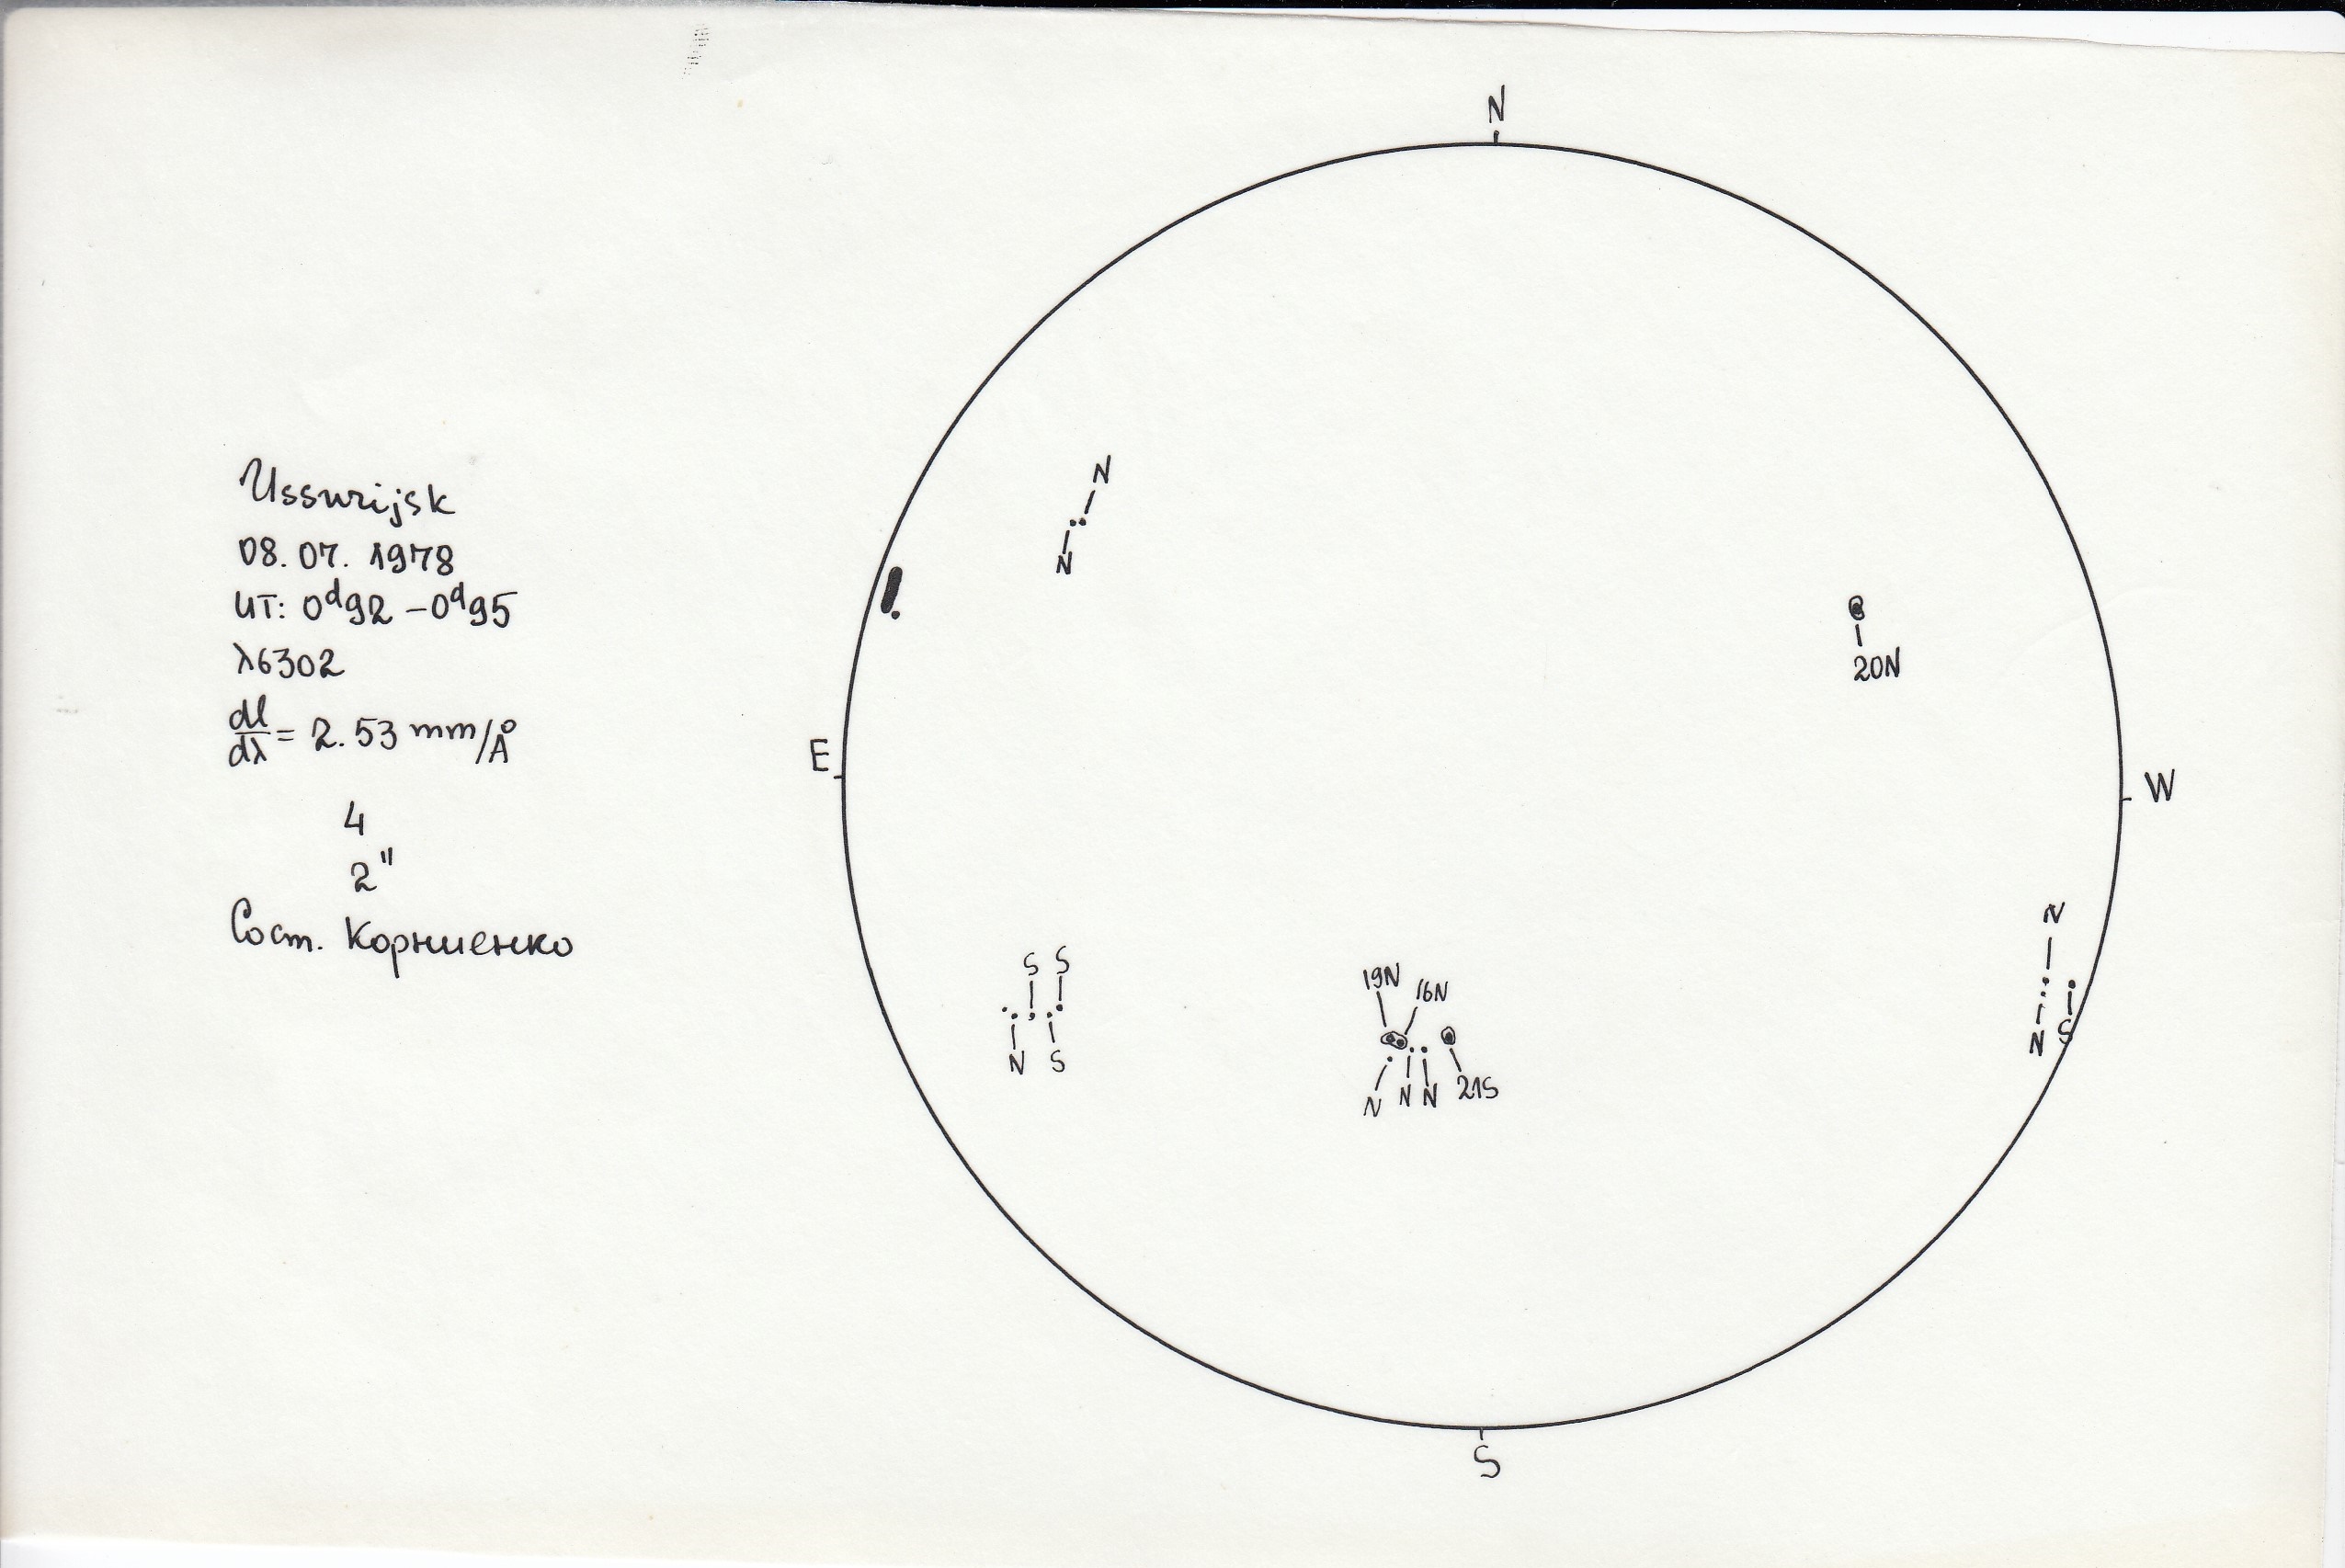 N
Ussurijsk
08.07.1978
UT: 0ᵈ92 – 0ᵈ95
λ6302
dl/dλ = 2.53 mm/Å
4
2"
Сост. Корниенко
N
N
20N
E
W
N
S S
N S
19N
16N
N N N 21S
N S
S